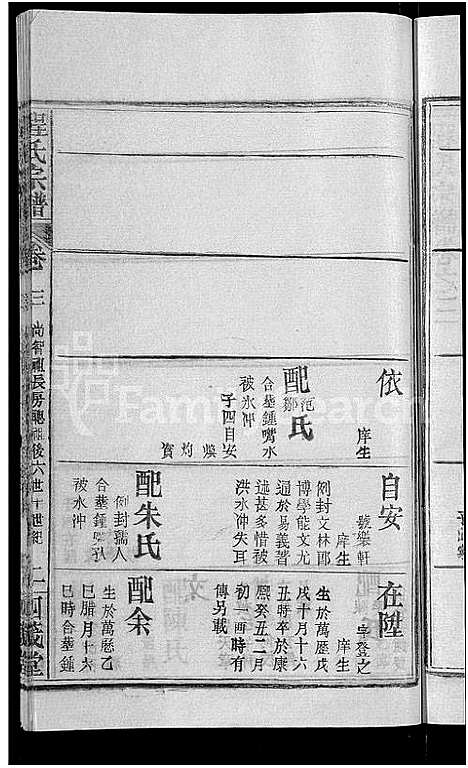 程氏宗譜
卷三
尚智祖長房聰祖後六世十世紀
二
依
庠生
配范鄒氏
合墓鍾嘴水
被氷冲
子四自安
煥 灼 賓
自安
號樂軒
庠生
例封文林郎
博學能文尤
通於易義著
述甚多惜被
洪水冲失耳
配朱氏
例封孺人
合墓鍾
被水冲
在陞
字登之
庠生
生於萬歷戊
戌十月十六
丑時卒於康
熙癸丑二月
初一酉時有
傳另載
配余
生於萬歷乙
巳腊月十六
巳時合墓鍾